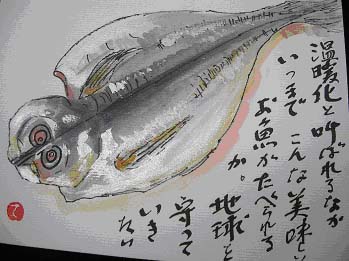 温暖化と呼ばれるなか
いつまでこんな美味しい
お魚がたべられる
か。地球を
守って
いき
たい
て